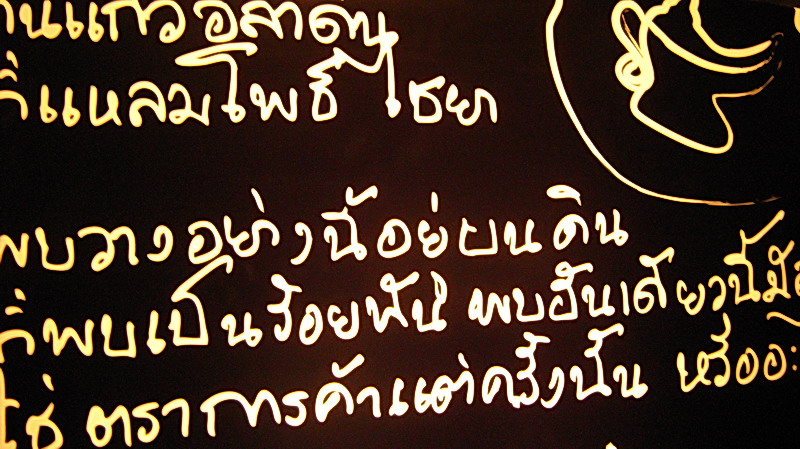 านแก้วอลาดิน
ที่แหลมโพธิ์ ไชยา
พบวางอย่างนี้อยู่บนดิน
ที่พบเป็นร้อยพัน พบอันเดียวนี้
ใช่ ตราการค้าแต่ครั้งนั้น หรืออะ